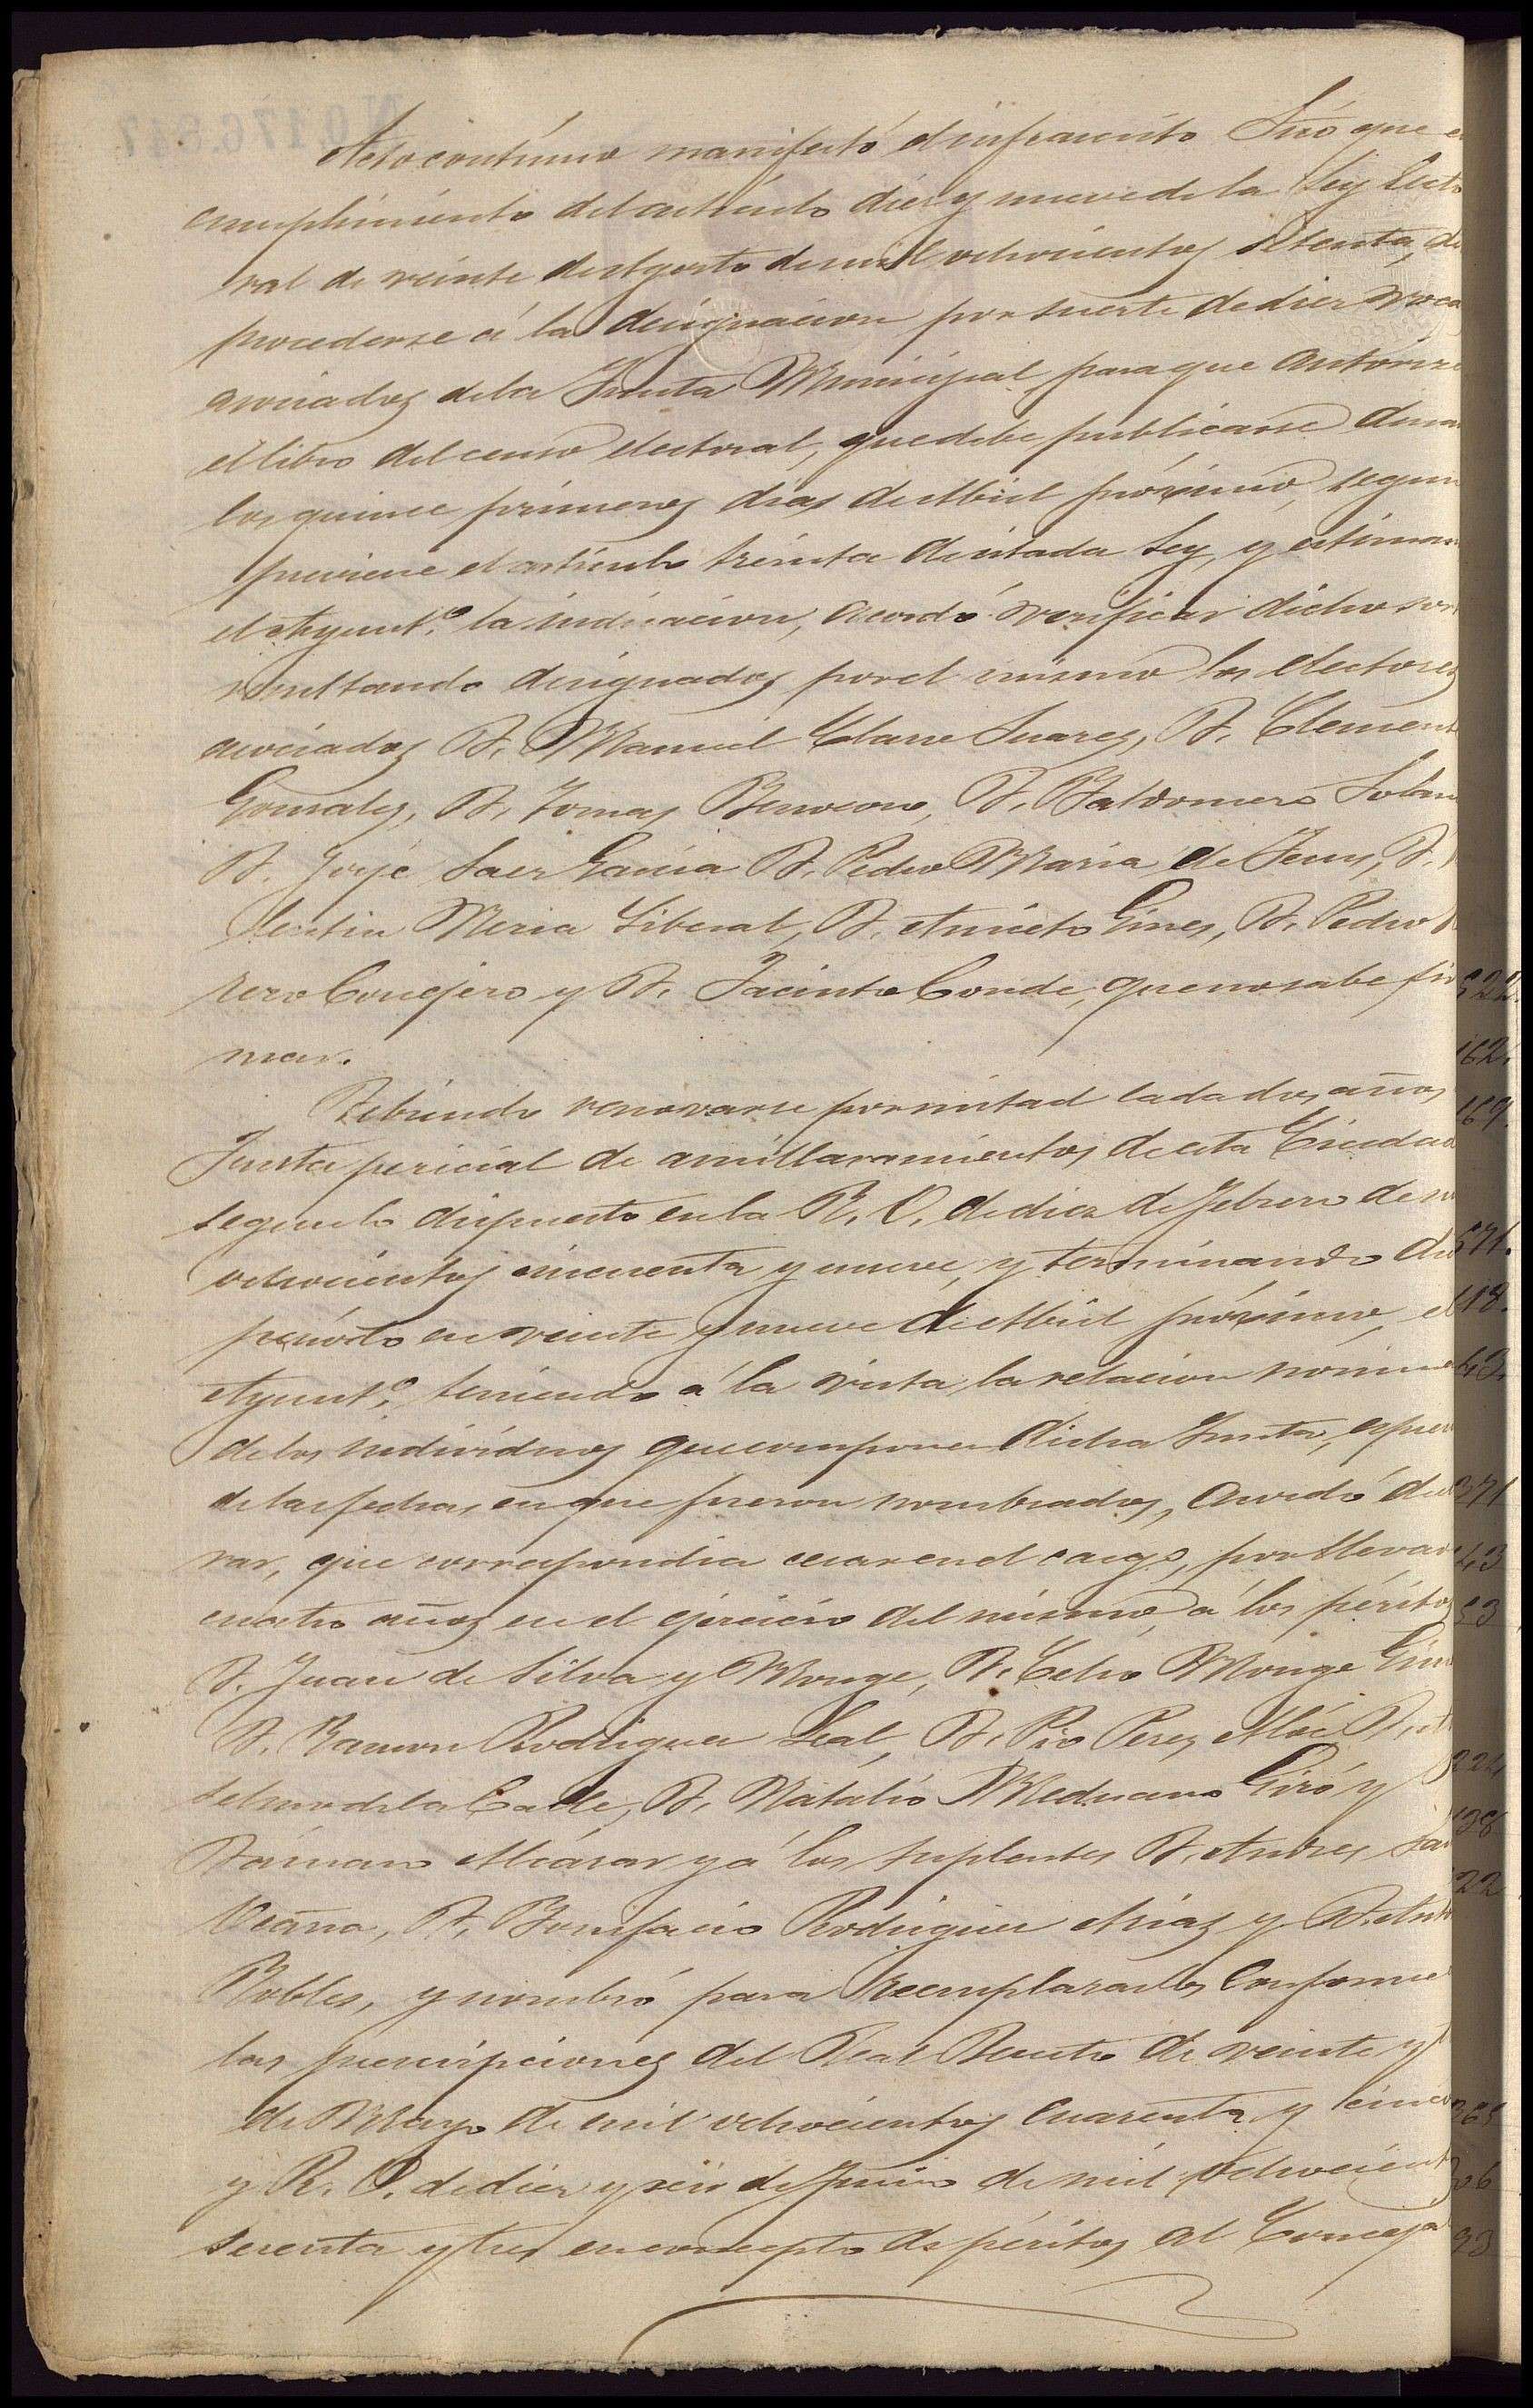 Acto contínuo manifestó el infrascrito Srio que e
cumplimiento del artículo diez y nueve de la Ley Electo
ral de veinte de Agosto de mil ochocientos setenta, de
procederse á la designacion por suerte de diez voca
asociados de la Junta Municipal, para que autorize
el libro del censo electoral, que debe publicarse duran
los quince primeros dias de Abril próximo, segun
previene el artículo treinta de citada Ley, y estiman
el Ayuntº. la indicacion, acordó verificar dicho sor
resultando designados por el mismo los electores
asociados D. Manuel Llave Suarez, D. Clemente
Gonzalez, D. Tomas D. Baldomero
D. Jorje Saez Garcia D. Pedro Maria de Jesus, D.
lentin Liberal, D. Aniceto Gines, D. Pedro
rero Conejero y D. Jacinto Conde, que no sabe fir
mar.
Debiendo renovarse por mitad cada dos años
Junta pericial de amillaramientos de esta Ciudad
segun lo dispuesto en la R. O. de diez de Febrero de m
ochocientos cincuenta y nueve, y terminando dic
periodo en veinte y nueve de Abril próximo, el
Ayuntº. teniendo á la vista la relacion nómina
de los individuos que componen dicha Junta, espre
de las fechas en que fueron nombrados, acordó decl
rar, que correspondia cesar en el cargo, por llevar
cuatro años en el ejercicio del mismo, á los péritos
D. Juan de Silva y Monge, D. Celso Monge Gim
D. Ramon Rodriguez Leal, D. Pio Perez D. A
selmo de la Calle, D. Natalio Medrano Giró y
Dámaso Alcázar y á los suplentes D. Andres
Ocaña, D. Bonifacio Rodriguez y D. Anto
Robles, y nombró para reemplazarlos conforme
las prescripciones del Real Decreto de veinte y
de Mayo de mil ochocientos cuarenta y cinco
y R. O. de diez y seis de Junio de mil ochocient
sesenta y tres en concepto de péritos al Conceja
522.
162.
169.
571.
418.
43.
371
43
53
224
138
22
365
306
93